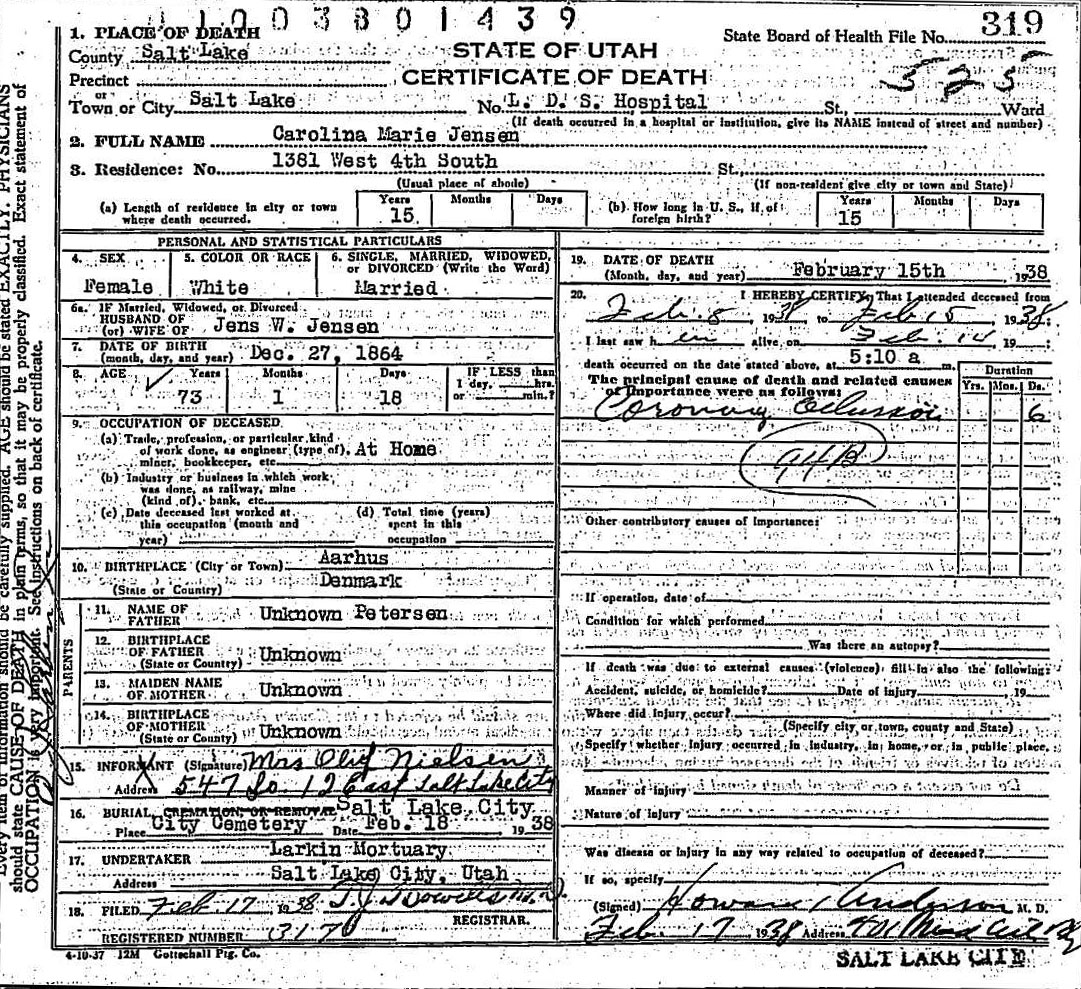 1 1 0 0 3 8 0 1 4 3 9
State Board of Health File No. 319
1. PLACE OF DEATH
County Salt Lake
STATE OF UTAH
CERTIFICATE OF DEATH
525
Precinct
or
Town or City Salt Lake No. L. D. S. Hospital St., Ward
(If death occurred in a hospital or institution, give its NAME instead of street and number)
2. FULL NAME Carolina Marie Jensen
3. Residence: No. 1381 West 4th South St.,
(Usual place of abode) (If non-resident give city or town and State)
(a) Length of residence in city or town where death occurred. Years 15 Months Days
(b) How long in U. S., if of foreign birth? Years 15 Months Days
PERSONAL AND STATISTICAL PARTICULARS
4. SEX Female
5. COLOR OR RACE White
6. SINGLE, MARRIED, WIDOWED, or DIVORCED (Write the Word) Married
6a. IF Married, Widowed, or Divorced
HUSBAND OF
(or) WIFE OF Jens W. Jensen
7. DATE OF BIRTH
(month, day, and year) Dec. 27, 1864
8. AGE Years 73 Months 1 Days 18
IF LESS than
1 day, hrs.
or min.?
9. OCCUPATION OF DECEASED
(a) Trade, profession, or particular kind
of work done, as engineer (type of). At Home
miner, bookkeeper, etc.
(b) Industry or business in which work
was done, as railway, mine
(kind of), bank, etc.
(c) Date deceased last worked at
this occupation (month and
year)
(d) Total time (years)
spent in this
occupation
10. BIRTHPLACE (City or Town) Aarhus
(State or Country) Denmark
PARENTS
11. NAME OF FATHER Unknown Petersen
12. BIRTHPLACE OF FATHER
(State or Country) Unknown
13. MAIDEN NAME OF MOTHER Unknown
14. BIRTHPLACE OF MOTHER
(State or Country) Unknown
15. INFORMANT (Signature) Mrs Olif Nielsen
Address 547 So. 12 East Salt Lake City
16. BURIAL, CREMATION, OR REMOVAL Salt Lake City
Place City Cemetery Date Feb. 18 1938
17. UNDERTAKER Larkin Mortuary
Address Salt Lake City, Utah
18. FILED Feb. 17 1938
REGISTRAR.
REGISTERED NUMBER 317
4-10-37 12M Gottschall Ptg. Co.
19. DATE OF DEATH
(Month, day, and year) February 15th 1938
20. I HEREBY CERTIFY, That I attended deceased from
Feb. 8 1938 to Feb 15 1938:
I last saw h er alive on Feb. 14 19 :
death occurred on the date stated above, at 5:10 a m.
The principal cause of death and related causes
of importance were as follows:
Duration
Yrs. Mos. Ds.
Coronary Occlusion 6
94B
Other contributory causes of importance:
If operation, date of
Condition for which performed
Was there an autopsy?
If death was due to external causes (violence) fill in also the following:
Accident, suicide, or homicide? Date of injury 19
Where did injury occur?
(Specify city or town, county and State)
Specify whether injury occurred in industry, in home, or in public place,
Manner of injury
Nature of injury
Was disease or injury in any way related to occupation of deceased?
If so, specify
(Signed) Howard Anderson M. D.
Feb. 17 1938 Address
SALT LAKE CITY
Every item of information should be carefully supplied. AGE should be stated EXACTLY. PHYSICIANS
should state CAUSE OF DEATH in plain terms, so that it may be properly classified. Exact statement of
OCCUPATION is very important. See instructions on back of certificate.